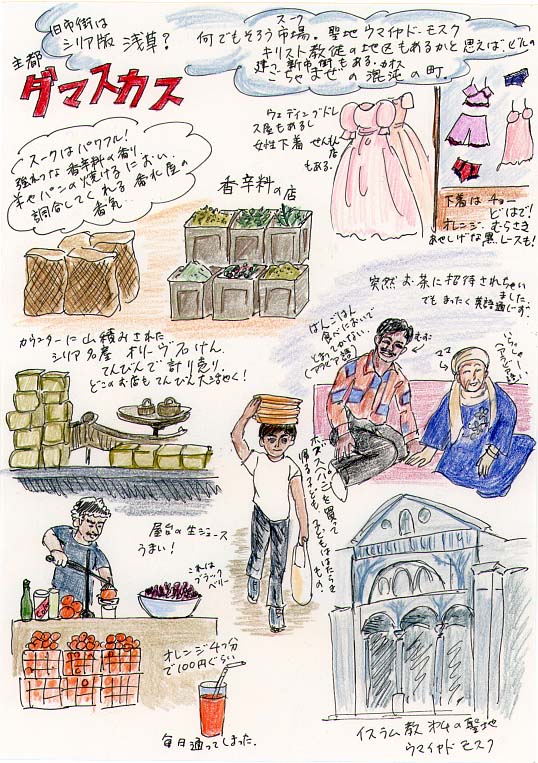 旧市街は
シリア版 浅草?
主都
ダマスカス
スーク
何でもそろう市場。聖地ウマイヤド・モスク
キリスト教徒の地区もあるかと思えば、ビルの
建つ新市街もある。カオス
ごちゃまぜの混沌の町。
スークはパワフル!
強烈な香辛料の香り
羊やパンの焼けるにおい、
調合してくれる香水屋の
香気…
香辛料の店
ウェディングドレ
ス屋もあるし
女性下着せんもん
店
もある。
下着はチョー
ど はで!
オレンジ、むらさき
あやしげな黒、レースも!
突然お茶に招待されちゃい
ました。
でもまったく英語通じーず。
ばんごはん
食べにおいで
とあっかない。
(アラビア語)
むすこ
ママ
いらっしゃーい
(アラビア語)
カウンターに山積みされた
シリア名産 オリーヴ石けん。
てんびんで計り売り。
どこのお店もてんびん大活やく!
ホブス(パン)を買って
帰る子ども。子どももはたらき
もの。
屋台の生ジュース
うまい!
これは
ブラック
ベリー
オレンジ4つ分
で100円ぐらい
毎日通ってしまった。
イスラム教 第4の聖地
ウマイヤド モスク